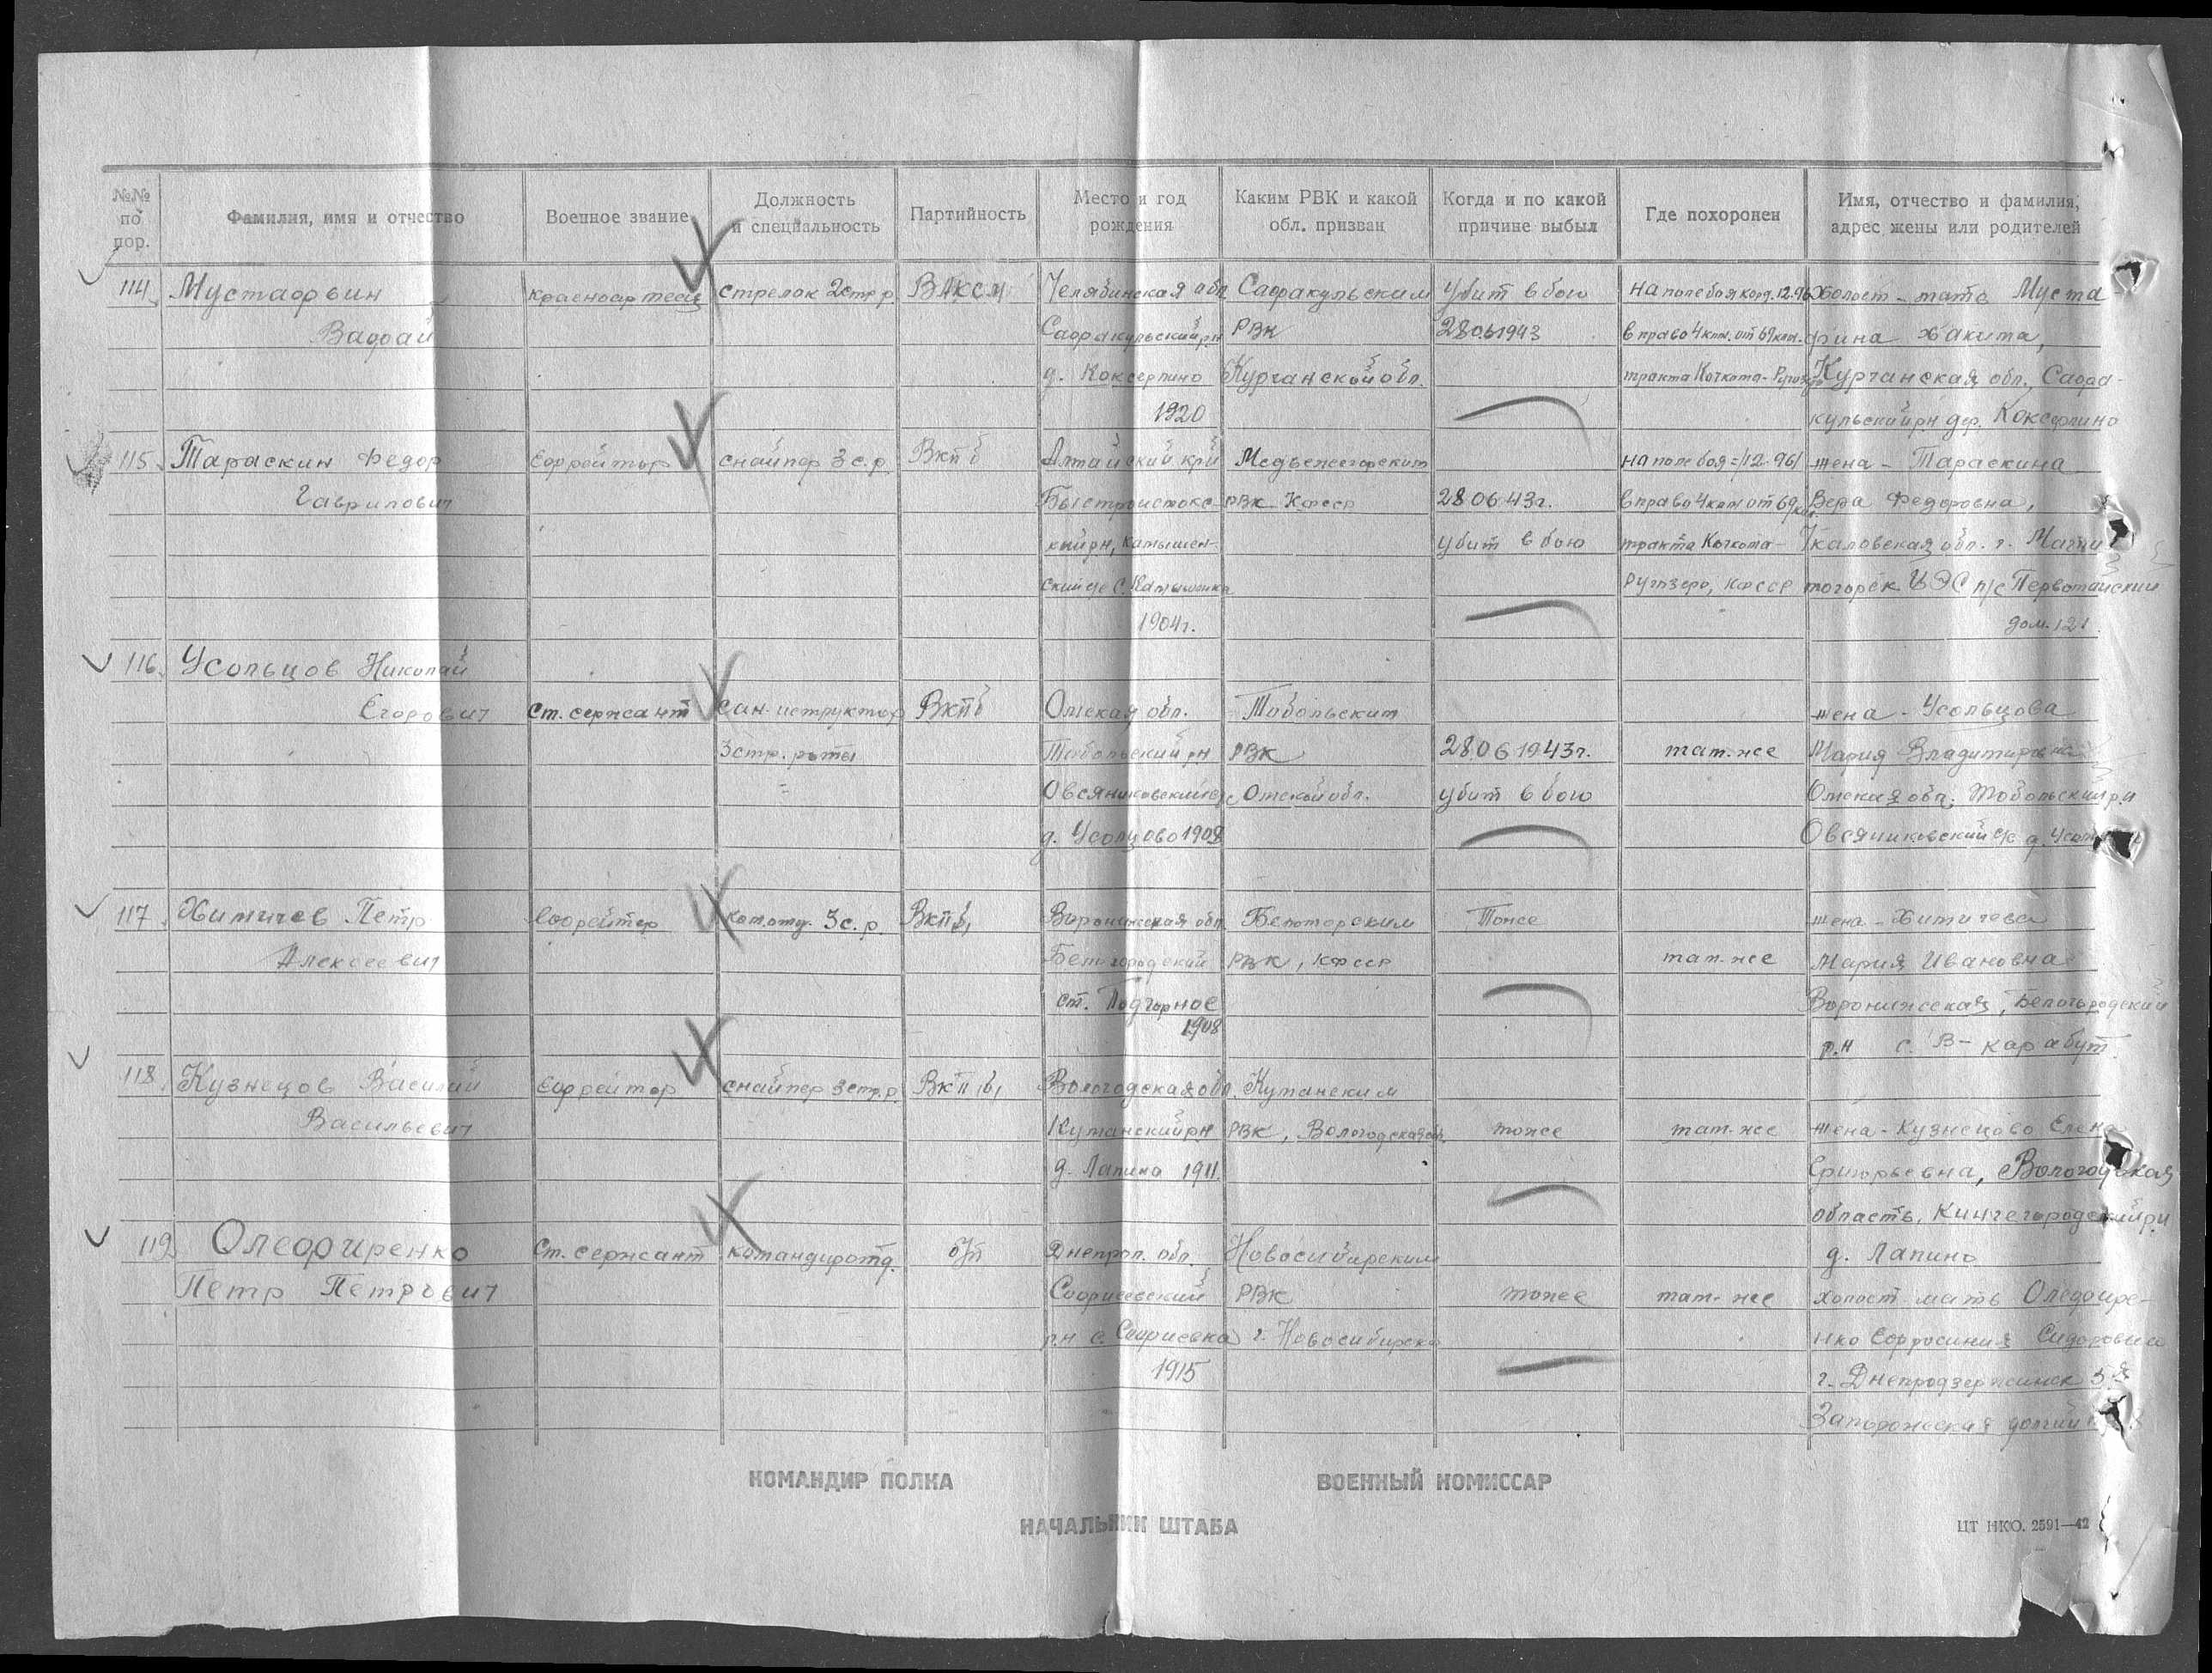 №№ по пор.
Фамилия, имя и отчество
Военное звание
Должность и специальность
Партийность
Место и год рождения
Каким РВК и какой обл. призван
Когда и по какой причине выбыл
Где похоронен
Имя, отчество и фамилия, адрес жены или родителей
114. Мустафин красноармеец стрелок 2стр.р ВЛКСМ Челябинская обл Сафакульским Убит в бою на поле боя коорд. 12.96 Холост - мать Муста-
Вафай Сафакульский р.н РВК 28.06.1943 вправо 4 клм. от 69 клм. фина Хакима,
д. Коксерлино Курганской обл. тракта Кочкома- Курганская обл., Сафа-
1920 кульский рн дер.
115. Тараскин Федор Ефрейтор снайпер 3 с.р. ВКПб Алтайский край Медвежегорским на поле боя - /12-96/ жена - Тараскина
Гаврилович Быстроистокс- РВК КФССР 28.06.43г. вправо 4 клм от 69 клм. Вера Федоровна,
кий рн, Камышен- убит в бою тракта Кочкома- Чкаловская обл. г. Магни-
ский с/с с. Камышенка Ругозеро, КФССР тогорск ЦЭС п/с Первомайский
1904г. дом. 121
116. Усольцов Николай
Егорович Ст. сержант сан. иструктор ВКПб Омская обл. Тобольским жена - Усольцова
3стр. роты Тобольский рн РВК 28.06 1943г. там-же Мария Владимировна
Овсяниковский с/с Омской обл. убит в бою Омская обл. Тобольский р.н
д. Усольцово 1908 Овсяниковский с/с д.
117. Химичев Петр Ефрейтор ком.отд. 3 с.р. ВКПб, Воронижская обл. Беломорским Тоже жена - Химичева
Алексеевич Белогородский РВК, КФССР там-же Мария Ивановна
ст. Подгорное Воронижская, Белогородский
1908 р.н с. В-карабут.
118. Кузнецов Василий Ефрейтор снайпер 3 стр.р. ВКП/б/ Вологодская обл.
Васильевич РВК, Вологодская обл. тоже там-же жена - Кузнецова Елена
д. Лапино 1911. Григорьевна, Вологодская
область,
119. Олефиренко Ст. сержант командир отд. б/п Днепроп. обл. Новосибирским д. Лапино
Петр Петрович Софиевский РВК тоже там-же холост мать Олефире-
р.н с. Софиевка г. Новосибирска нко Ефросиния Сидоровна
1915 г. Днепродзержинск 5
Запорожская
КОМАНДИР ПОЛКА
ВОЕННЫЙ КОМИССАР
НАЧАЛЬНИК ШТАБА
ЦТ НКО. 2591—42